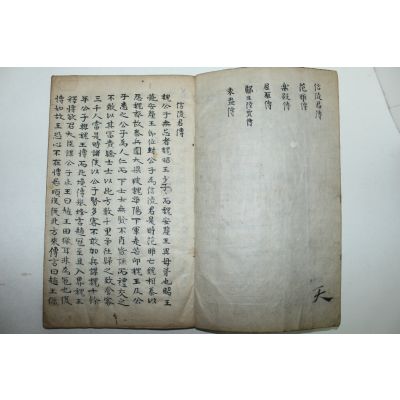 信陵君傳
范雎傳
樂毅傳
屈原傳
酈生陸賈傳
袁盎傳
天
信陵君傳
魏公子無忌者魏昭王少子而魏安釐王異母弟也昭王
薨安釐王即位封公子爲信陵君是時范雎亡魏相秦以
怨魏齊故秦兵圍大梁破魏華陽下軍走芒卯魏王及公
子患之公子爲人仁而下士士無賢不肖皆謙而禮交之
不敢以其富貴驕士士以此方數千里爭往歸之致食客
三千人當是時諸侯以公子賢多客不敢加兵謀魏十餘
年公子與魏王博而北境傳舉烽言趙寇至且入界魏王
釋博欲召大臣謀公子止王曰趙王田獵耳非爲寇也復
博如故王恐心不在博居頃復從北方來傳言曰趙王獵